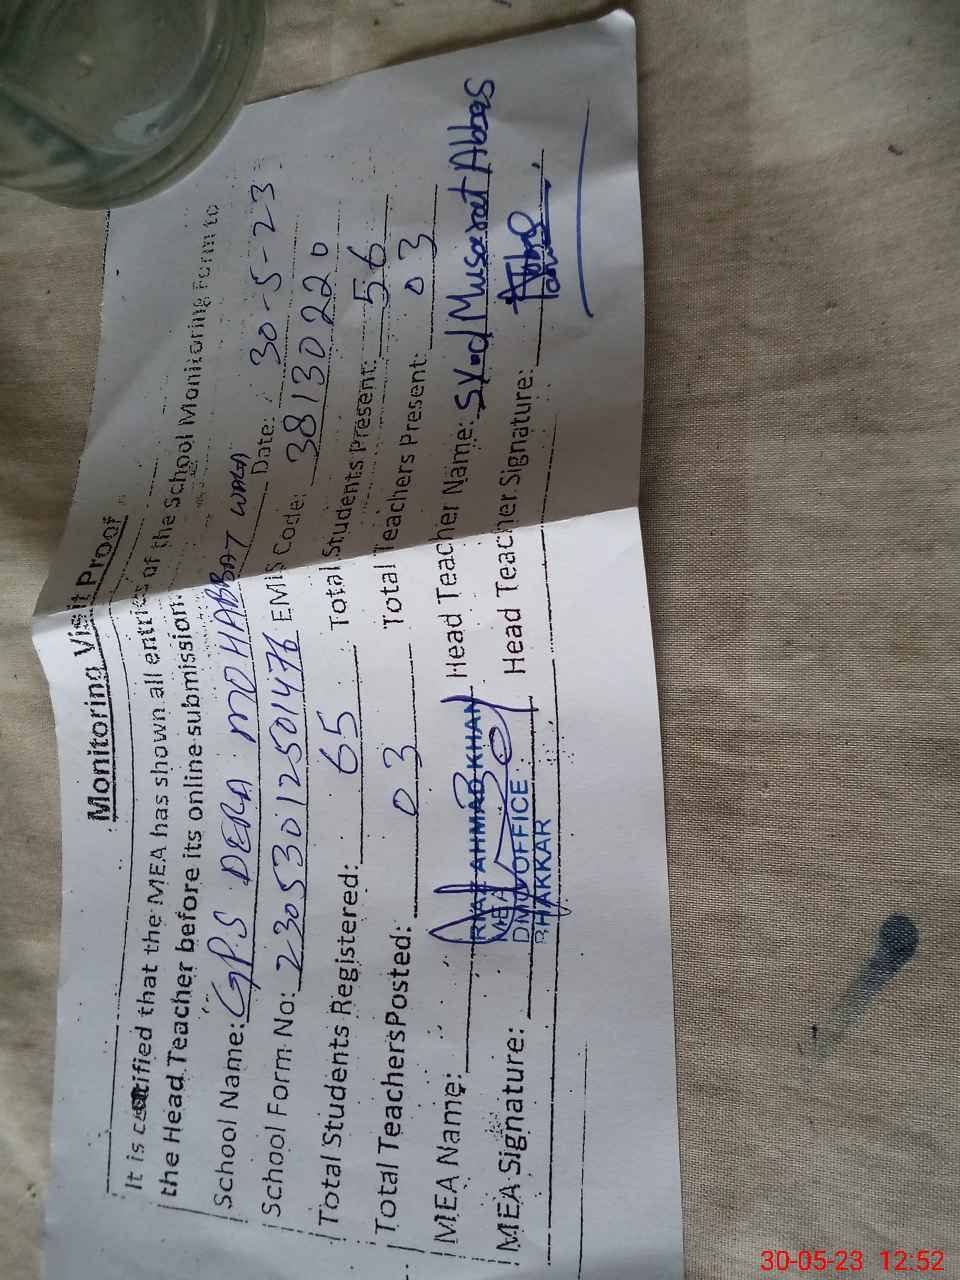 Monitoring Visit Proof
It is certified that the MEA has shown all entries of the School Monitoring Form to
the Head Teacher before its online submission.
School Name: GPS DERA MOHABBAT WALA Date: 30-5-23
School Form No: 23053012501476 EMIS Code: 38130220
Total Students Registered: 65 Total Students Present: 56
Total Teachers Posted: 03 Total Teachers Present: 03
MEA Name: RIAZ AHMAD KHAN Head Teacher Name: Syed Musarat Abbas
MEA
MEA Signature: DMO OFFICE Head Teacher Signature:
BHAKKAR
30-05-23 12:52